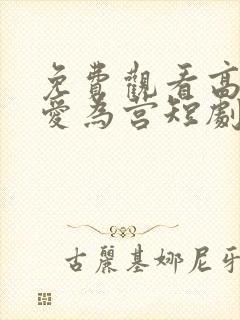 免費觀看高
愛為營短劇
古麗基娜尼牙